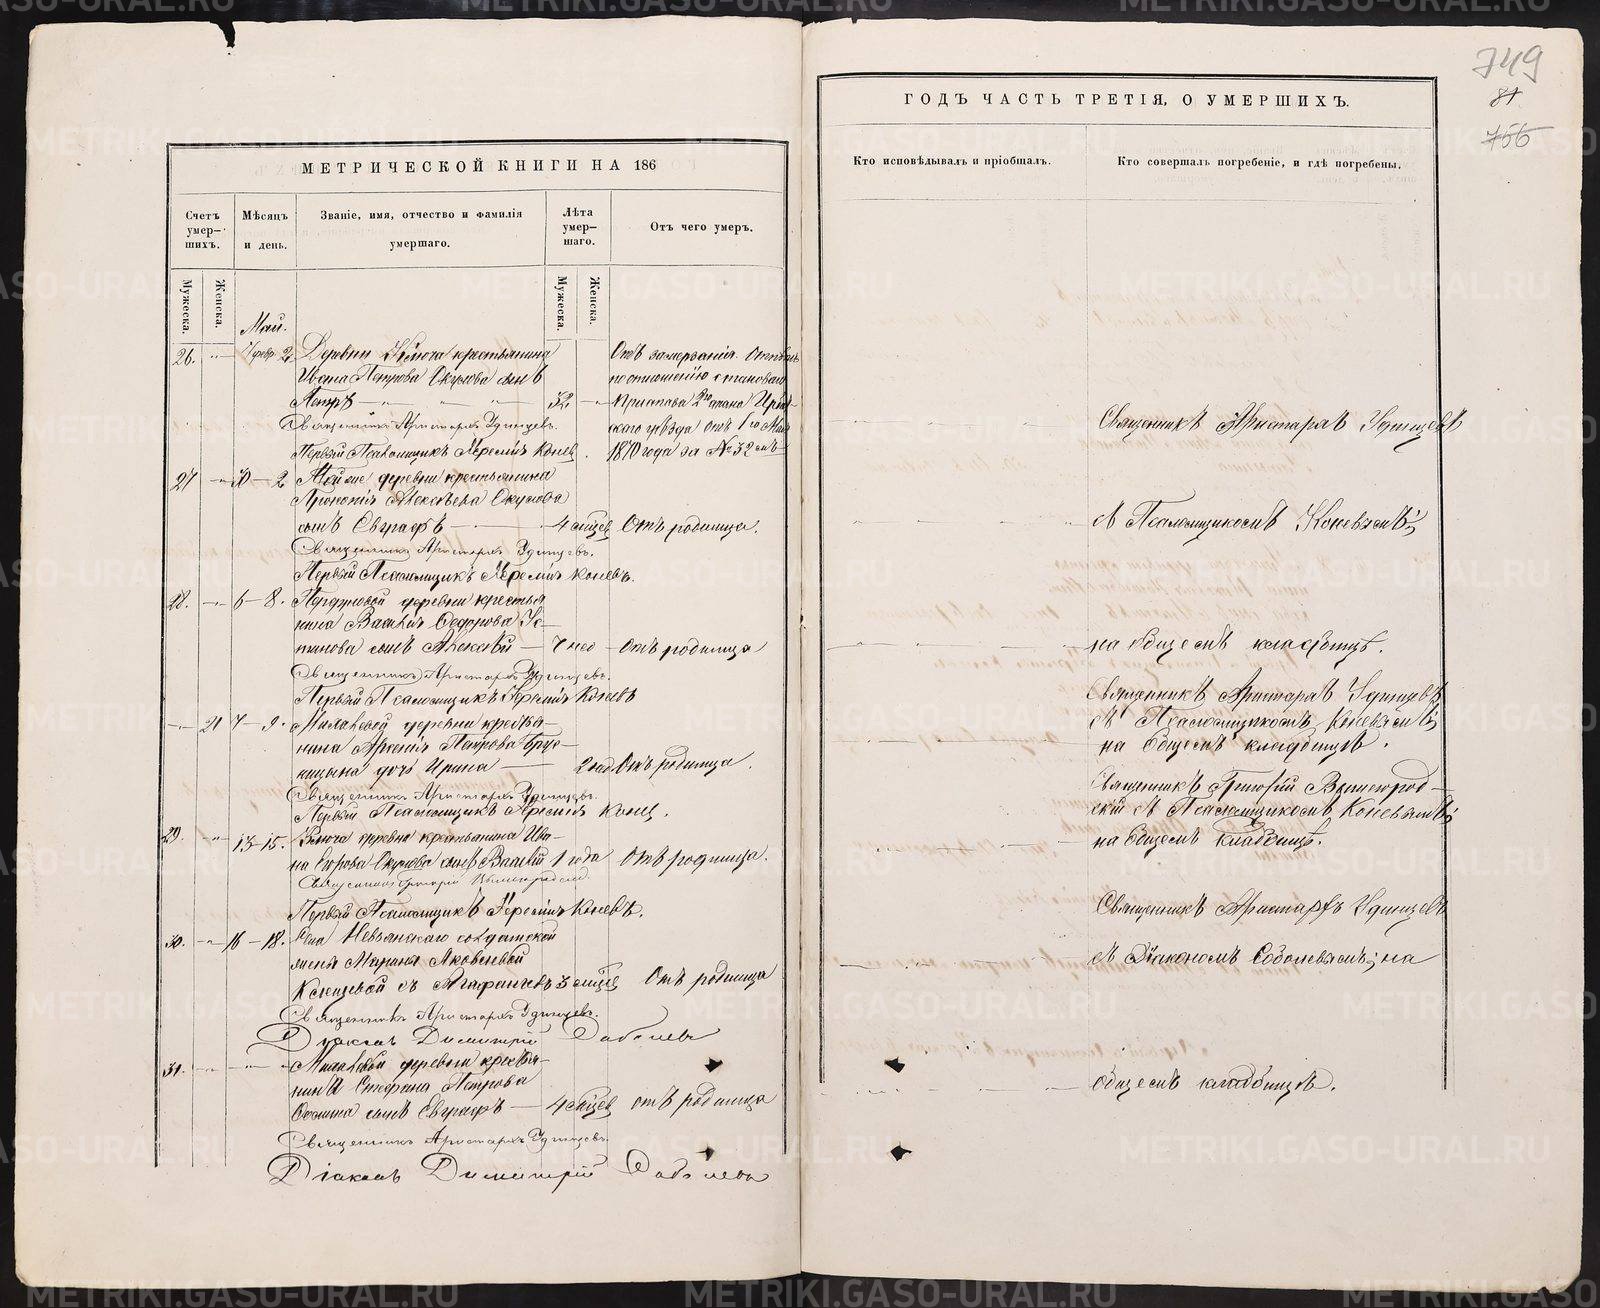 749
81
756
МЕТРИЧЕСКОЙ КНИГИ НА 186
ГОДЪ ЧАСТЬ ТРЕТІЯ, О УМЕРШИХЪ.
Счетъ умер-шихъ.
Мѣсяцъ и день.
Званіе, имя, отчество и фамилія умершаго.
Лѣта умер-шаго.
Отъ чего умеръ.
Кто исповѣдывалъ и пріобщалъ.
Кто совершалъ погребеніе, и гдѣ погребены.
Мужеска.
Женска.
Мужеска.
Женска.
Май.
26. 2 Деревни Ключа крестьянина Отъ замерзанія.
Ивана Петрова Окулова сынъ по отношенію становаго
Петръ 32 Пристава 2го стана
Священникъ Аристархъ Удинцевъ. уѣзда отъ 1го Мая
Первый Псаломщикъ Іеремія Коневъ. 1870 года за № 32
27 30 - 2 Той же деревни крестьянина
Прокопія Алексѣева Окулова
сынъ Евграфъ 4 мѣсяцев Отъ родимца.
Священникъ Аристархъ Удинцевъ.
Первый Псаломщикъ Іеремія Коневъ.
28. 6 - 8. деревни крестья
нина Василія Ѳедорова Ус-
тинова сынъ Алексѣй 7 нед Отъ родимца
Священникъ Аристархъ Удинцевъ.
Первый Псаломщикъ Іеремія Коневъ
21 7 - 9. деревни крестья-
нина Арсенія Петрова Брус-
ницына дочь Ирина 2 год Отъ родимца.
Священникъ Аристархъ Удинцевъ.
Первый Псаломщикъ Іеремія Конев.
29. 13-15. Ключа деревни крестьянина Ива-
на Егорова Окулова сынъ Василій 1 года Отъ родимца.
Священникъ Григорій Вышегородскій
Первый Псаломщикъ Іеремія Коневъ.
30. 16 - 18. Села Невьянскаго солдатской
жены Марины Яковлевой
3 мѣсяцев Отъ родимца
Священникъ Аристархъ Удинцевъ.
Діаконъ Димитрій Соболевъ
31. деревни крестья-
нина Стефана Петрова
сынъ Евграфъ 4 мѣсяцев отъ родимца
Священникъ Аристархъ Удинцевъ.
Діаконъ Димитрій Соболевъ
Священникъ Аристархъ Удинцевъ
съ Псаломщикомъ Коневымъ;
на общемъ кладбищѣ.
Священникъ Аристархъ Удинцевъ
съ Псаломщикомъ Коневымъ;
на общемъ кладбищѣ.
Священникъ Григорій Вышегород-
скій съ Псаломщикомъ Коневымъ;
на общемъ кладбищѣ.
Священникъ Аристархъ Удинцевъ
съ Діакономъ Соболевымъ; на
общемъ кладбищѣ.
METRIKI.GASO-URAL.RU